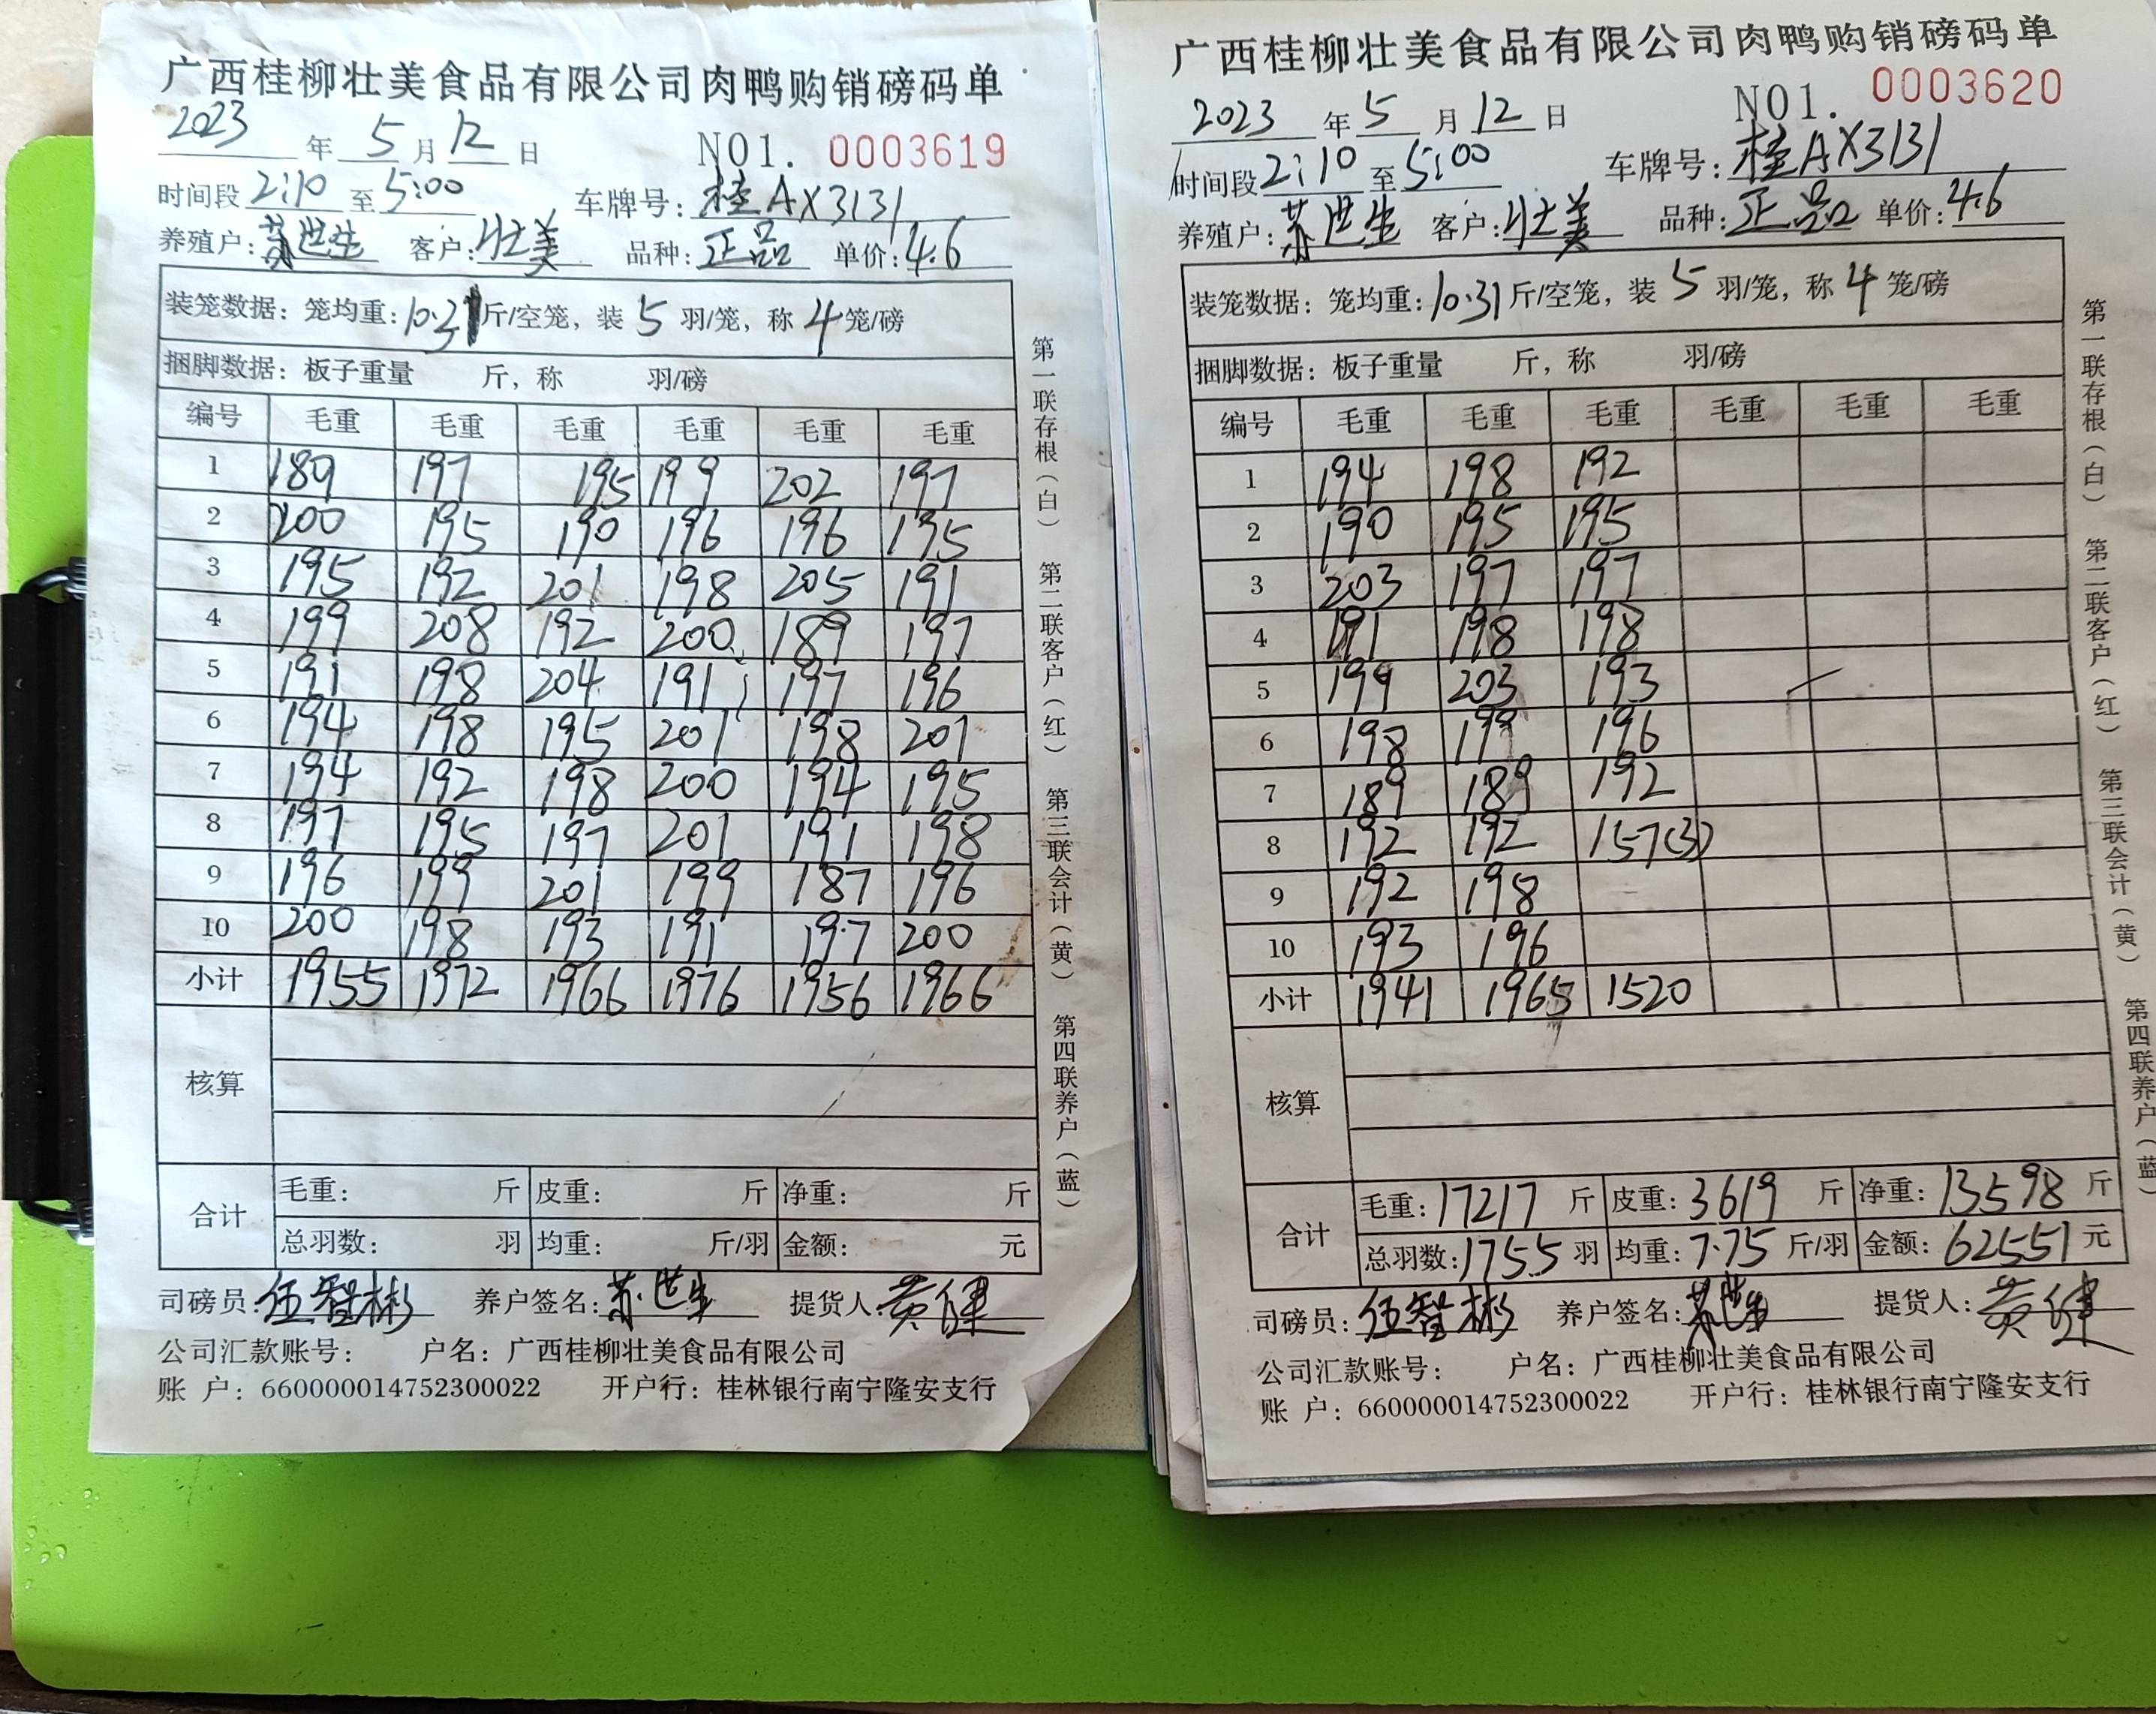 广西桂柳壮美食品有限公司肉鸭购销磅码单
2023 年 5 月 12 日 NO1. 0003619
时间段 2:10 至 5:00 车牌号: 桂AX3131
养殖户: 苏世生 客户: 壮美 品种: 正品 单价: 4.6
装笼数据: 笼均重: 10.31 斤/空笼, 装 5 羽/笼, 称 4 笼/磅
捆脚数据: 板子重量 斤, 称 羽/磅
编号 毛重 毛重 毛重 毛重 毛重 毛重
1 189 197 195 199 202 197
2 200 195 190 196 196 195
3 195 192 201 198 205 191
4 199 208 192 200 189 197
5 191 198 204 191 197 196
6 194 198 195 201 198 201
7 194 192 198 200 194 195
8 197 195 197 201 191 198
9 196 199 201 199 187 196
10 200 198 193 191 197 200
小计 1955 1972 1966 1976 1956 1966
核算
合计 毛重: 斤 皮重: 斤 净重: 斤
总羽数: 羽 均重: 斤/羽 金额: 元
司磅员: 伍智彬 养户签名: 苏世生 提货人: 黄健
公司汇款账号: 户名: 广西桂柳壮美食品有限公司
账 户: 660000014752300022 开户行: 桂林银行南宁隆安支行
第一联存根(白) 第二联客户(红) 第三联会计(黄) 第四联养户(蓝)
广西桂柳壮美食品有限公司肉鸭购销磅码单
2023 年 5 月 12 日 NO1. 0003620
时间段 2:10 至 5:00 车牌号: 桂AX3131
养殖户: 苏世生 客户: 壮美 品种: 正品 单价: 4.6
装笼数据: 笼均重: 10.31 斤/空笼, 装 5 羽/笼, 称 4 笼/磅
捆脚数据: 板子重量 斤, 称 羽/磅
编号 毛重 毛重 毛重 毛重 毛重 毛重
1 194 198 192
2 190 195 195
3 203 197 197
4 191 198 198
5 199 203 193
6 198 199 196
7 189 189 192
8 192 192 157(3)
9 192 198
10 193 196
小计 1941 1965 1520
核算
合计 毛重: 17217 斤 皮重: 3619 斤 净重: 13598 斤
总羽数: 1755 羽 均重: 7.75 斤/羽 金额: 62551 元
司磅员: 伍智彬 养户签名: 苏世生 提货人: 黄健
公司汇款账号: 户名: 广西桂柳壮美食品有限公司
账 户: 660000014752300022 开户行: 桂林银行南宁隆安支行
第一联存根(白) 第二联客户(红) 第三联会计(黄) 第四联养户(蓝)